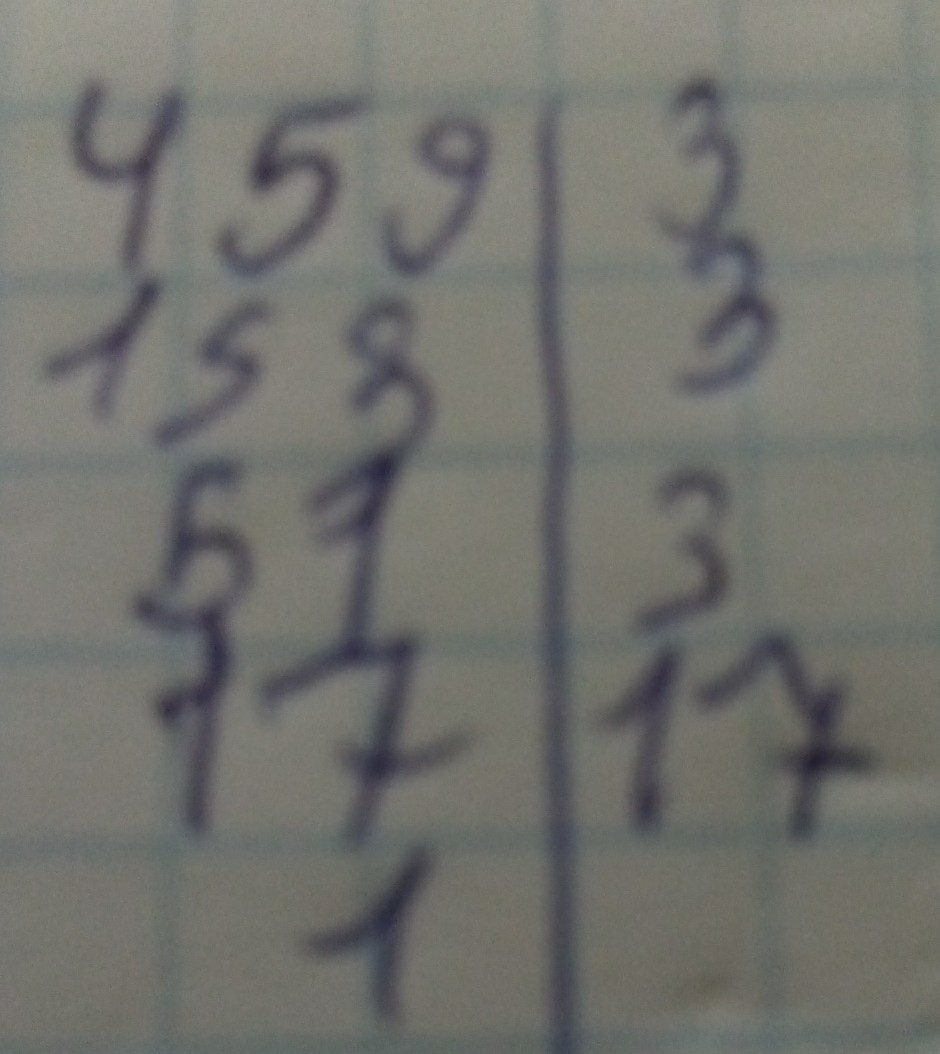 459 | 3
153 | 3
51 | 3
17 | 17
1 |